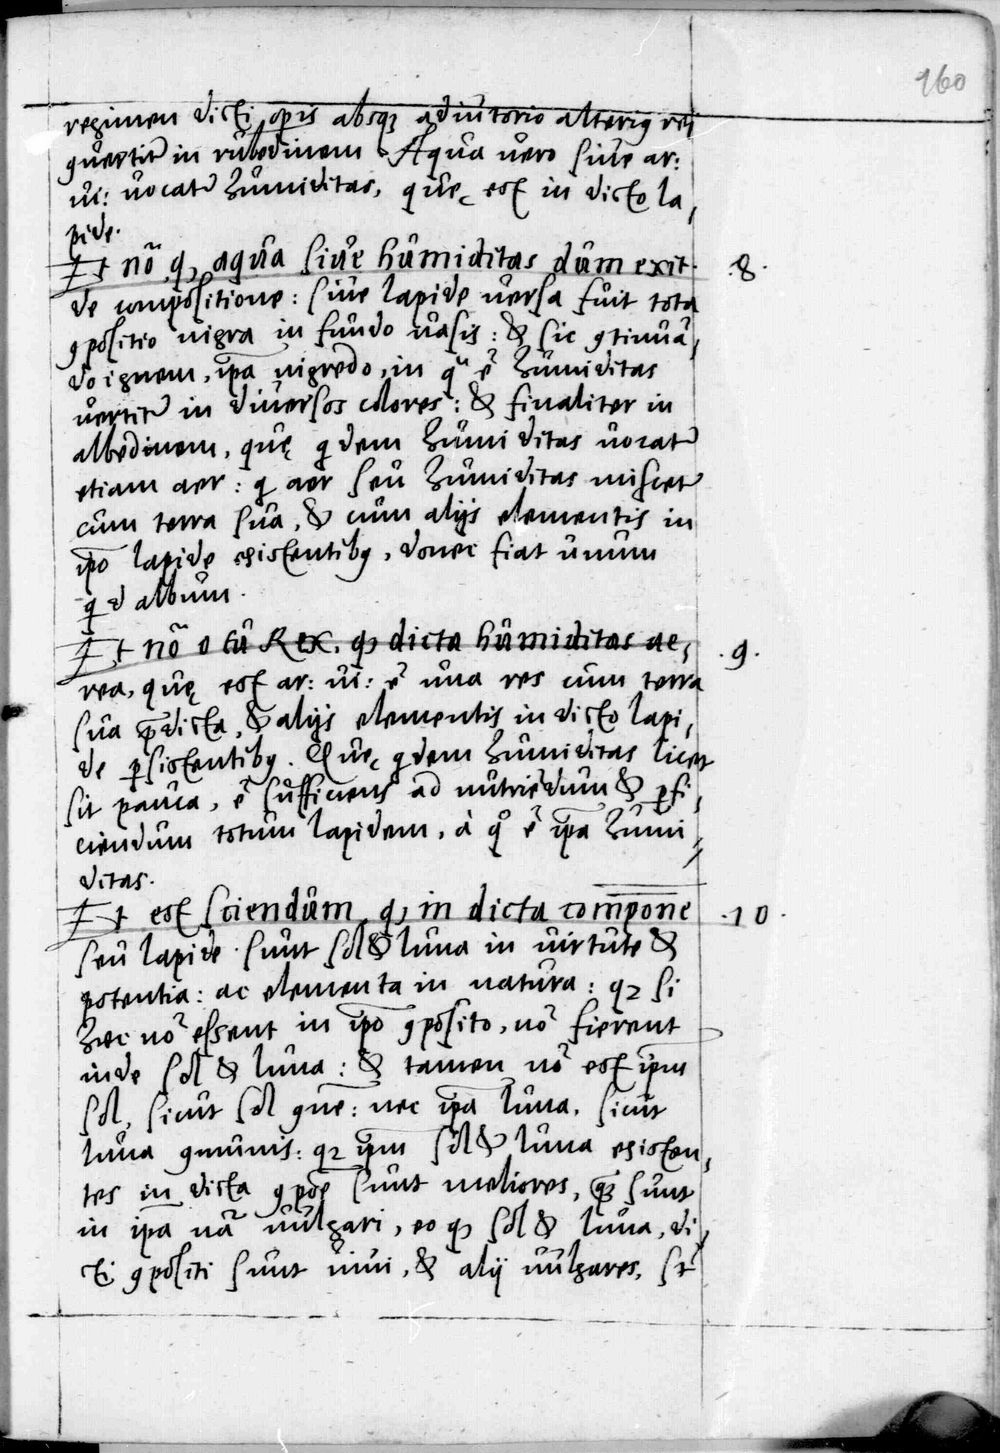 160
regimen dicti opis absq; adiutorio alteriꝯ rei
ꝯvertit᷑ in rubedinem. Aqua vero sive ar:
vi: vocat᷑ humiditas, quę est in dicto la,
pide.
Et nō, ꝙ aqua sive humiditas dum exit .8.
de compositione: sive lapide versa fuit tota
ꝯpositio nigra in fundo vasis: & sic ꝯtinua,
do ignem, ip̄a nigredo, in qª ē humiditas
vertit᷑ in diversos colores: & finaliter in
albedinem, quę qdem humiditas vocat᷑
etiam aer: q aer seu humiditas miscet᷑
cum terra sua, & cum alijs elementis in
ip̄o lapide existentibꝯ, donec fiat unum
qd album.
Et nō o tu Rex, ꝙ dicta humiditas ae, .9.
rea, quę est ar: vi: ē una res cum terra
sua p̄dicta, & alijs elementis in dicto lapi,
de ꝑsistentibꝯ. Quę qdem humiditas licet
sit pauca, ē sufficiens ad nutriēdum & ꝑfi,
ciendum totum lapidem, à qº ē ip̄a humi,
ditas.
Et est sciendum, ꝙ in dicta compon̄e .10.
seu lapide sunt sol & luna in virtute &
potentia: ac elementa in natura: qꝫ si
hæc nō essent in ip̄o ꝯposito, nō fierent
inde sol & luna: & tamen nō est ip̄m
sol, sicut sol ꝯn̄e: nec ip̄a luna, sicut
luna ꝯmunis: qꝫ ip̄m sol & luna existen,
tes in dicta ꝯpōe sunt meliores, quā sunt
in ip̄a nā vulgari, eo ꝙ sol & luna, di,
cti ꝯpositi sunt vivi, & alij vulgares, st̄